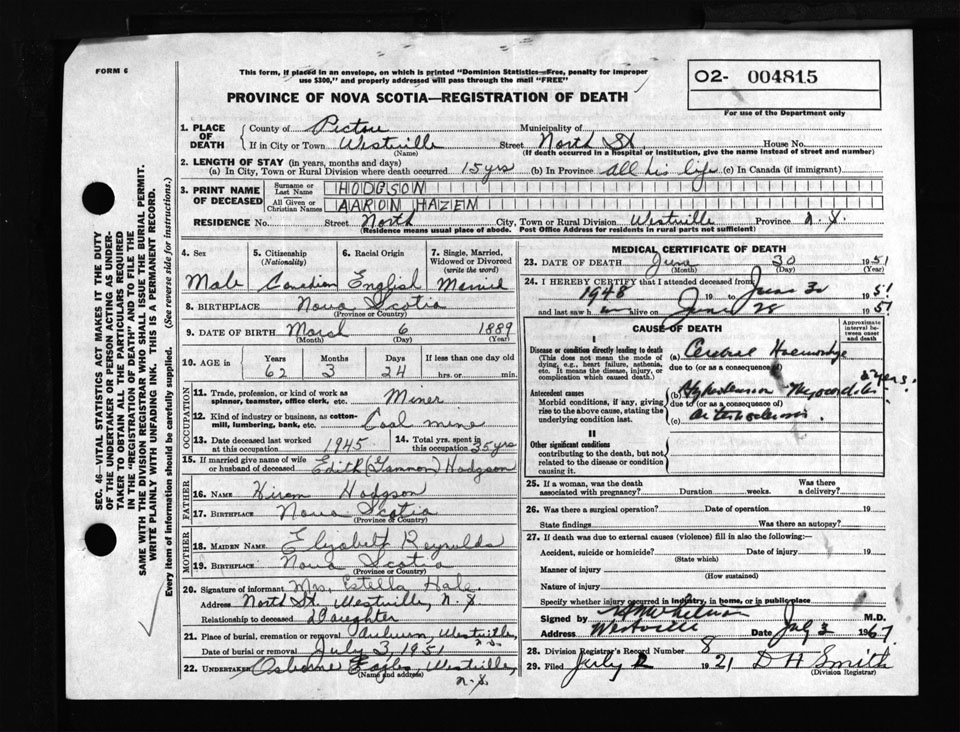 FORM 6
This form, if placed in an envelope, on which is printed "Dominion Statistics—Free, penalty for improper
use $300," and properly addressed will pass through the mail "FREE"
O2- 004815
For use of the Department only
PROVINCE OF NOVA SCOTIA—REGISTRATION OF DEATH
1. PLACE OF DEATH County of Pictou Municipality of
If in City or Town Westville (Name) Street North St. House No.
(If death occurred in a hospital or institution, give the name instead of street and number)
2. LENGTH OF STAY (in years, months and days)
(a) In City, Town or Rural Division where death occurred 15 yrs (b) In Province All his life (c) In Canada (if immigrant)
3. PRINT NAME OF DECEASED Surname or Last Name HODGSON
All Given or Christian Names AARON HAZEN
RESIDENCE No. Street North City, Town or Rural Division Westville Province N.S.
(Residence means usual place of abode. Post Office Address for residents in rural parts not sufficient)
4. Sex 5. Citizenship (Nationality) 6. Racial Origin 7. Single, Married, Widowed or Divorced (write the word)
Male Canadian English Married
8. BIRTHPLACE Nova Scotia
(Province or Country)
9. DATE OF BIRTH March 6 1889
(Month) (Day) (Year)
10. AGE in Years Months Days If less than one day old
62 3 24 hrs. or min.
OCCUPATION
11. Trade, profession, or kind of work as spinner, teamster, office clerk, etc. Miner
12. Kind of industry or business, as cotton-mill, lumbering, bank, etc. Coal mine
13. Date deceased last worked at this occupation 1945 14. Total yrs. spent in this occupation 35 yrs
15. If married give name of wife or husband of deceased Edith (Gammon) Hodgson
FATHER
16. NAME Hiram Hodgson
17. BIRTHPLACE Nova Scotia
(Province or Country)
MOTHER
18. MAIDEN NAME Elizabeth Reynolds
19. BIRTHPLACE Nova Scotia
(Province or Country)
20. Signature of informant Mrs. Estella Hale
Address North St. Westville, N.S.
Relationship to deceased Daughter
21. Place of burial, cremation or removal Auburn, Westville, N.S.
Date of burial or removal July 3, 1951
22. UNDERTAKER Osborne Westville, N.S.
(Name and address)
MEDICAL CERTIFICATE OF DEATH
23. DATE OF DEATH June 30 1951
(Month) (Day) (Year)
24. I HEREBY CERTIFY that I attended deceased from
1948 19 to June 30 1951
and last saw h alive on June 28 1951
CAUSE OF DEATH
Approximate interval between onset and death
I
Disease or condition directly leading to death (a) Cerebral Haemorrhage
(This does not mean the mode of dying, e.g., heart failure, asthenia, etc. It means the disease, injury, or complication which caused death.)
due to (or as a consequence of)
Antecedent causes (b) Hypertension Myocarditis yrs.
Morbid conditions, if any, giving rise to the above cause, stating the underlying condition last.
due to (or as a consequence of)
(c)
II
Other significant conditions
contributing to the death, but not related to the disease or condition causing it.
25. If a woman, was the death associated with pregnancy? Duration weeks. Was there a delivery?
26. Was there a surgical operation? Date of operation 19
State findings Was there an autopsy?
27. If death was due to external causes (violence) fill in also the following:—
Accident, suicide or homicide? Date of injury 19
(State which)
Manner of injury
(How sustained)
Nature of injury
Specify whether injury occurred in industry, in home, or in public place
Signed by M.D.
Address Westville Date July 3 196
28. Division Registrar's Record Number 8
29. Filed July 2 1921 D H Smith
(Division Registrar)
SEC. 46—VITAL STATISTICS ACT MAKES IT THE DUTY
OF THE UNDERTAKER OR PERSON ACTING AS UNDER-
TAKER TO OBTAIN ALL THE PARTICULARS REQUIRED
IN THE "REGISTRATION OF DEATH" AND TO FILE THE
SAME WITH THE DIVISION REGISTRAR WHO SHALL ISSUE THE BURIAL PERMIT.
WRITE PLAINLY WITH UNFADING INK. THIS IS A PERMANENT RECORD.
Every item of information should be carefully supplied. (See reverse side for instructions.)